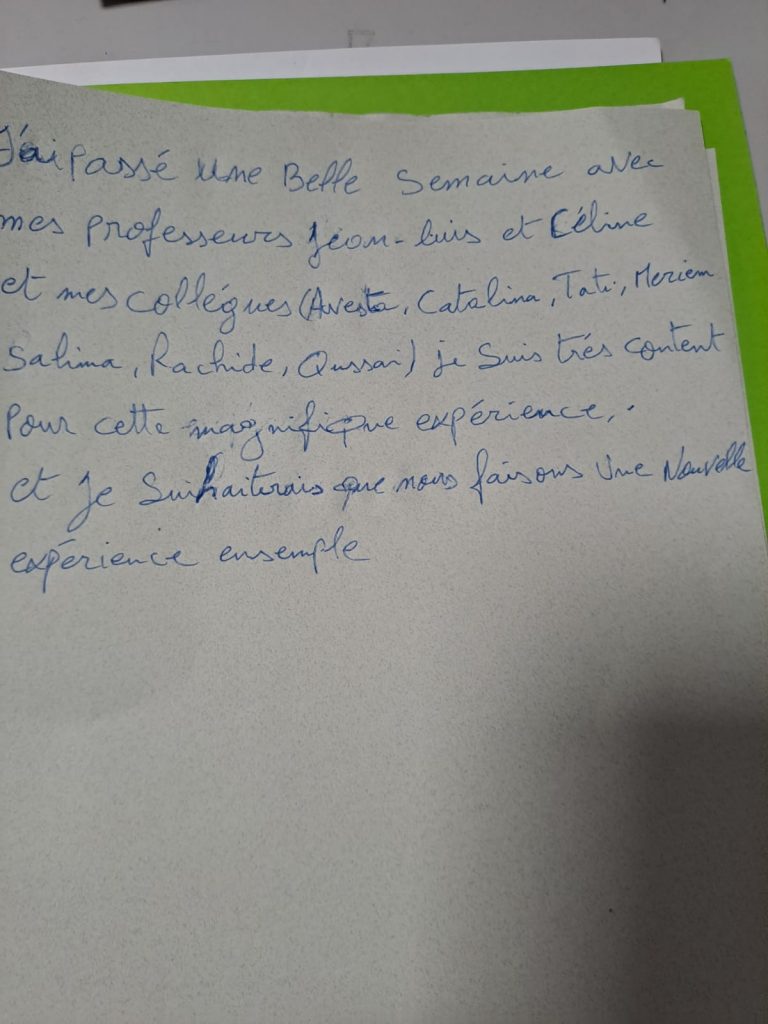 J'ai passé une Belle semaine avec
mes professeurs Jean-luis et Céline
et mes collégues (Avesta, Catalina, Tati, Meriem
Salima, Rachide, Qussai) je suis trés content
Pour cette magnifique expérience,.
et je suihaiterais que nous faisons une Nouvelle
expérience ensemple